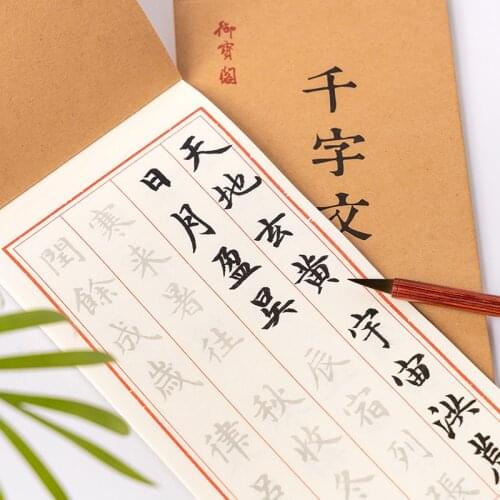 御寶閣
千字文
天地玄黄宇宙洪荒
日月盈昃辰宿列張
寒来暑往秋收冬
閏餘成歲律呂